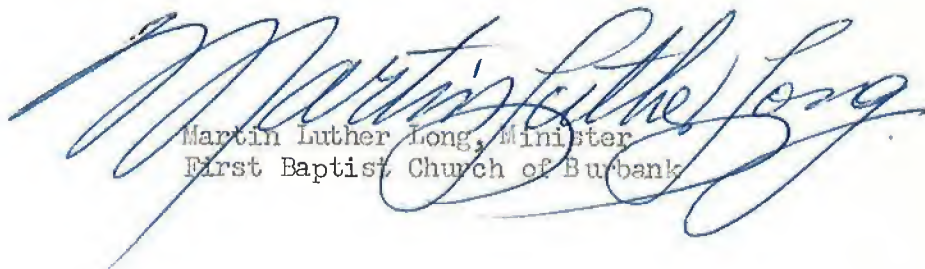 Martin Luther Long
Martin Luther Long, Minister
First Baptist Church of Burbank